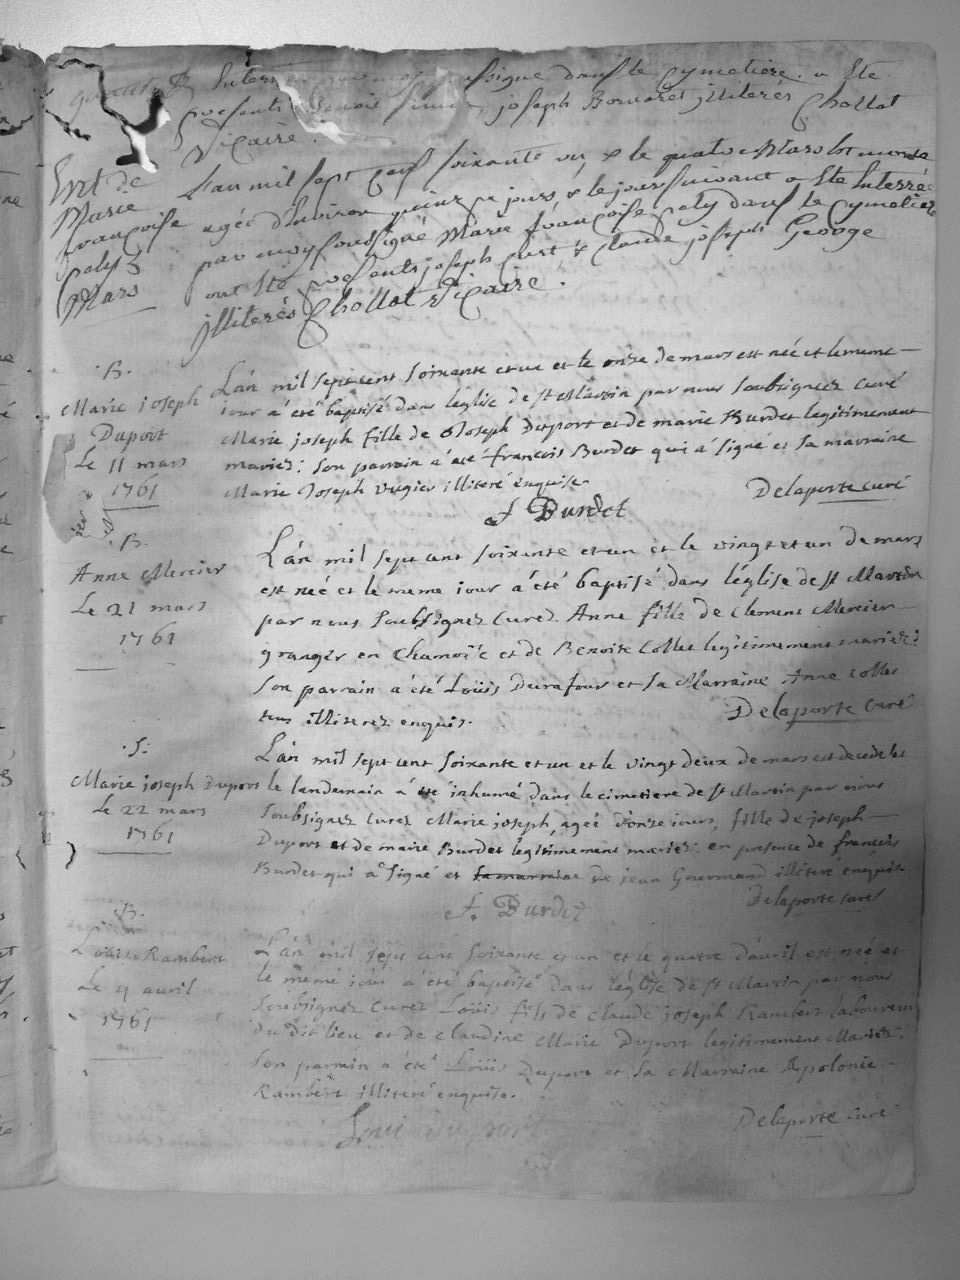 Interré par moy soussigné dans le Cymetiere. a Eté
présents joseph illiterés Chollat
Vicaire.
Ent de
Marie
françoise
paly 3
Mars
L'an mil sept cent soixante un & le quatre Mars est morte
agée d'Environ quinze jours, & le jour suivant a Eté Interrée
par moy soussigné Marie françoise paly dans le Cymetiere
ont été présents joseph curt, & Claude joseph George
illiterés Chollat Vicaire.
.B.
Marie joseph
Duport
Le 11 mars
1761
L'an mil sept cent soixante et un et le onze de mars est née et le meme
iour a été baptisé dans léglise de st Martin par nous soubsignez curé
Marie joseph fille de Joseph Duport et de marie Burdet legitimement
mariez: son parrain a été françois Burdet qui a signé et sa marraine
Marie Joseph Vugier illiteré enquise.
Delaporte curé
f Burdet
.B.
Anne Mercier
Le 21 mars
1761
L'an mil sept cent soixante et un et le vingt et un de mars
est néé et le meme iour a été baptisé dans léglise de st Martin
par nous soubsignez curez Anne fille de Clement Mercier
granger en chamoise et de Benoite Collet legitimement mariez:
son parrain a été Loüis Durafour et sa Marraine Anne Collet
tous illiterez enquis.
Delaporte curé
.S.
Marie joseph Duport
Le 22 mars
1761
L'an mil sept cent soixante et un et le vingt deux de mars est decedé et
le landemain a été inhumé dans le cimetiere de st Martin par nous
soubsignez curez Marie joseph, agéé d'onze iours, fille de joseph
Duport et de marie Burdet legitimement mariez: en presence de françois
Burdet qui a signé et sa marraine de jean Gourmand illiteré enquis
Delaporte curé
f. Burdet
.B.
Loüis Rambert
Le 4 avril
1761
L'an mil sept cent soixante et un et le quatre d'avril est néé et
le méme iour a été baptisé dans léglise de st Martin par nous
soubsignez curez Loüis fils de claude joseph Rambert laboureur
du dit lieu et de claudine Marie Duport legitimement Mariez.
son parrain a été Loüis Duport et sa Marraine Apolonie
Rambert illiteré enquise.
Delaporte curé